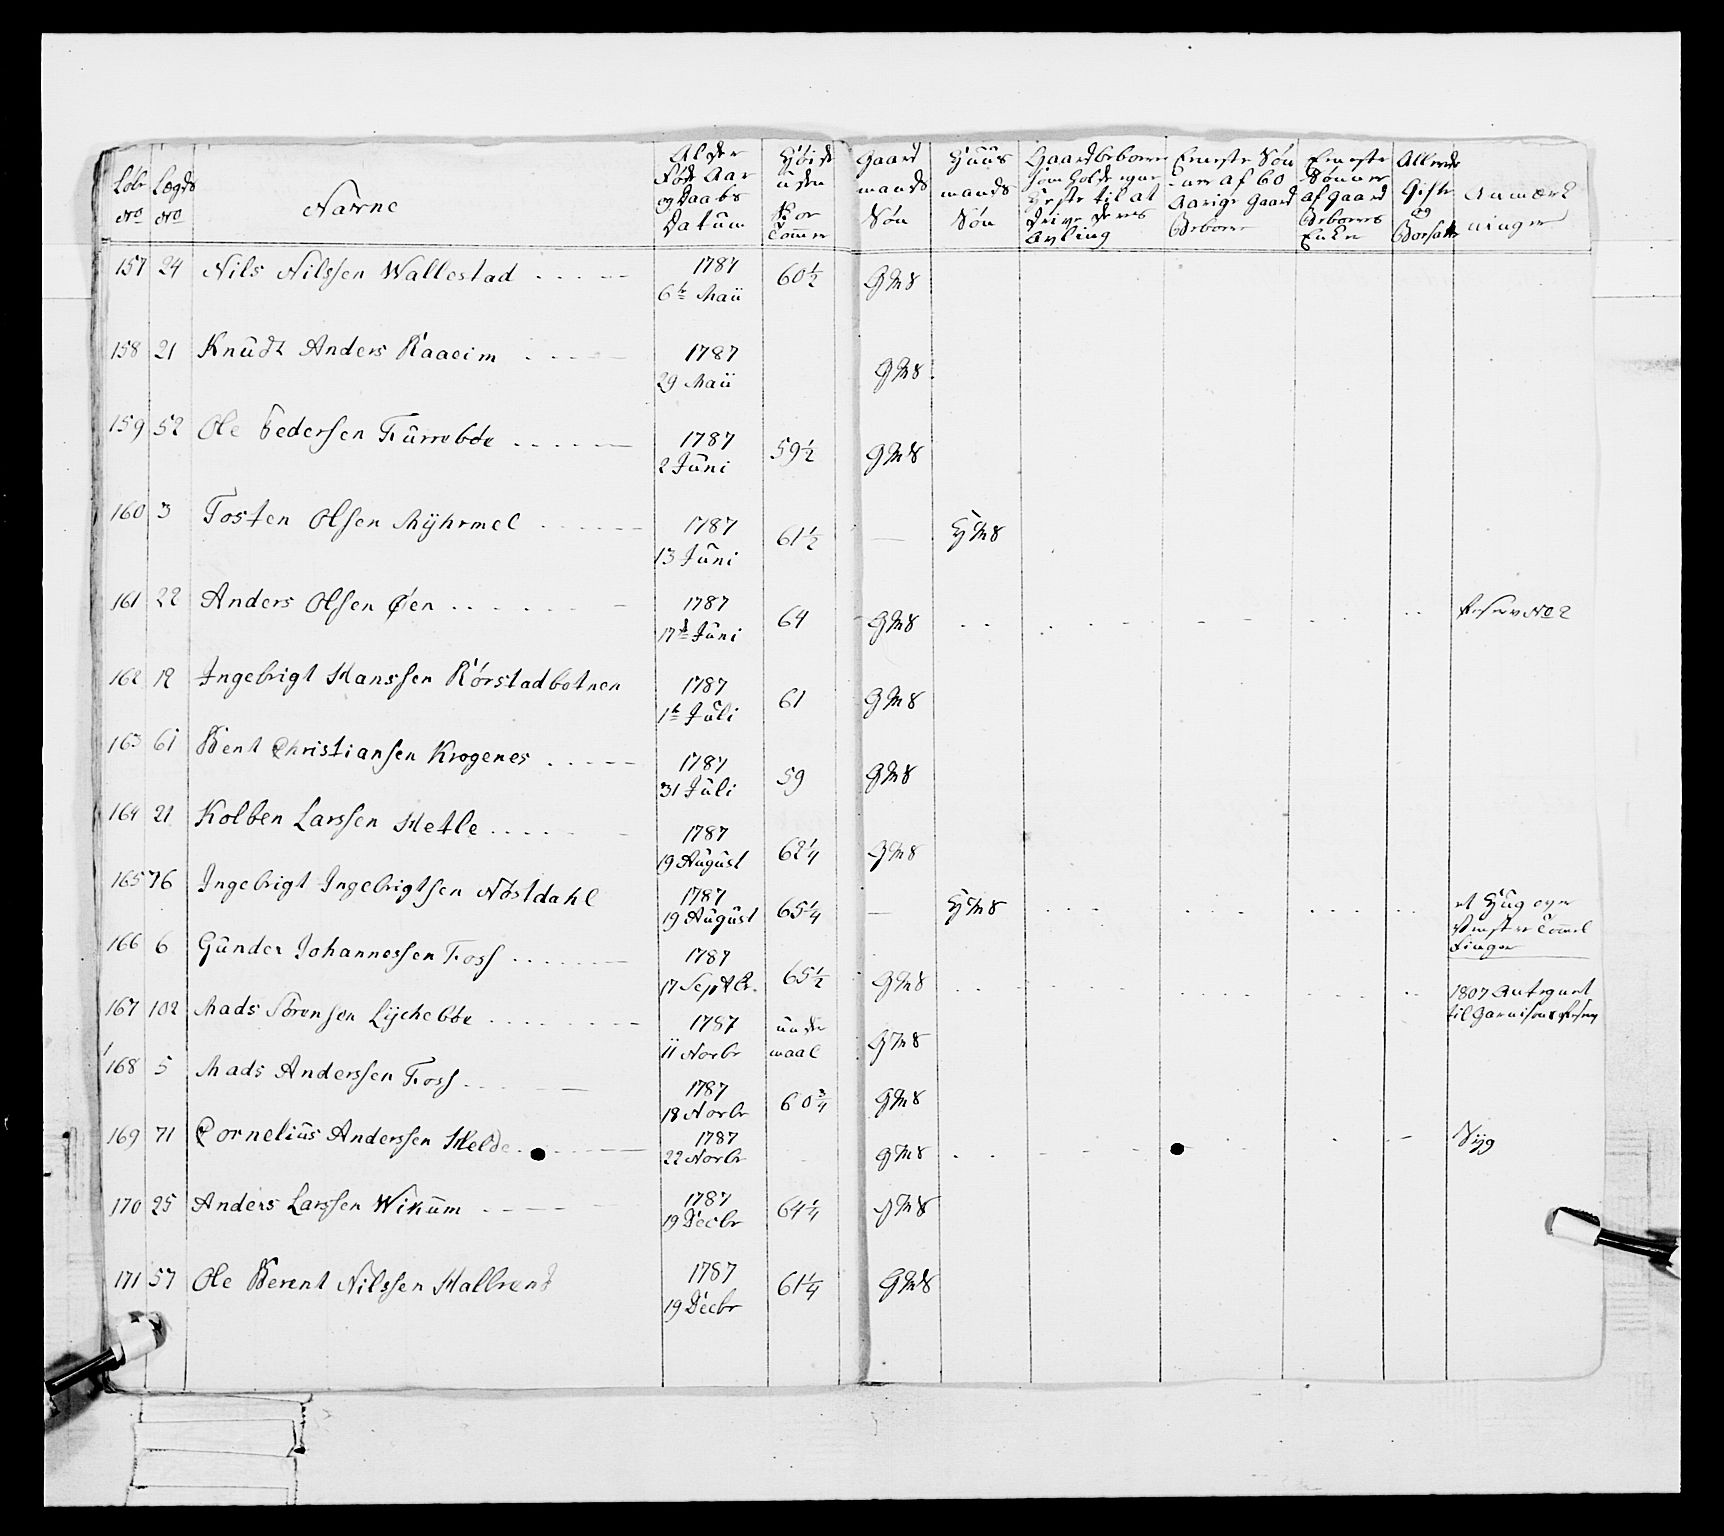 Løbe No | Lægds No | Navne | Alder Føde Aar og Daabs Datum | Høide uden For Tommer | Gaard mands Søn | Huus mands Søn | Gaardbeboere som holde egne Heste til at drive deres Avling | Eeneste Søn af 60 Aarige Gaard Beboere | Eeneste Sønner af Gaard Beboeres Enker | Allerede Gifte og Bosatte | Anmærkninger
157 | 24 | Nils Nilssen Wallestad | 1787 6te Maii | 60½ | GMS
158 | 21 | Knudt Anders Raaeim | 1787 29 Maii | | GMS
159 | 52 | Ole Pedersen Furrebøe | 1787 2 Juni | 59½ | GMS
160 | 3 | Tosten Olsen Myhrmel | 1787 13 Juni | 61½ | — | HMS
161 | 22 | Anders Olsen Øen | 1787 17de Juni | 64 | GMS | Reserv No 2
162 | 12 | Ingebrigt Hanssen Rørstadbotnen | 1787 1te Juli | 61 | GMS
163 | 61 | Bent Christiansen Krogenes | 1787 31 Juli | 59 | GMS
164 | 21 | Kolben Larssen Hetle | 1787 19 August | 62¼ | GMS
165 | 76 | Ingebrigt Ingebrigtsen Nøstdahl | 1787 19 August | 65¼ | — | HMS | et Hug over Venstre Tommel Finger
166 | 6 | Gunder Johannessen Foss | 1787 17 Septbr. | 65½ | GMS | 1807 Antegnet til Garnisons
167 | 102 | Mads Sørensen Lychebøe | 1787 11 Novbr | under maal | GMS
168 | 5 | Mads Anderssen Foss | 1787 18 Novbr | 60¾ | GMS
169 | 71 | Cornelius Anderssen Helde | 1787 22 Novbr | | GMS | Syg
170 | 25 | Anders Larssen Wikum | 1787 19 Decbr | 64¼ | GMS
171 | 57 | Ole Berent Nilssen Halbrend | 1787 19 Decbr | 61¼ | GMS